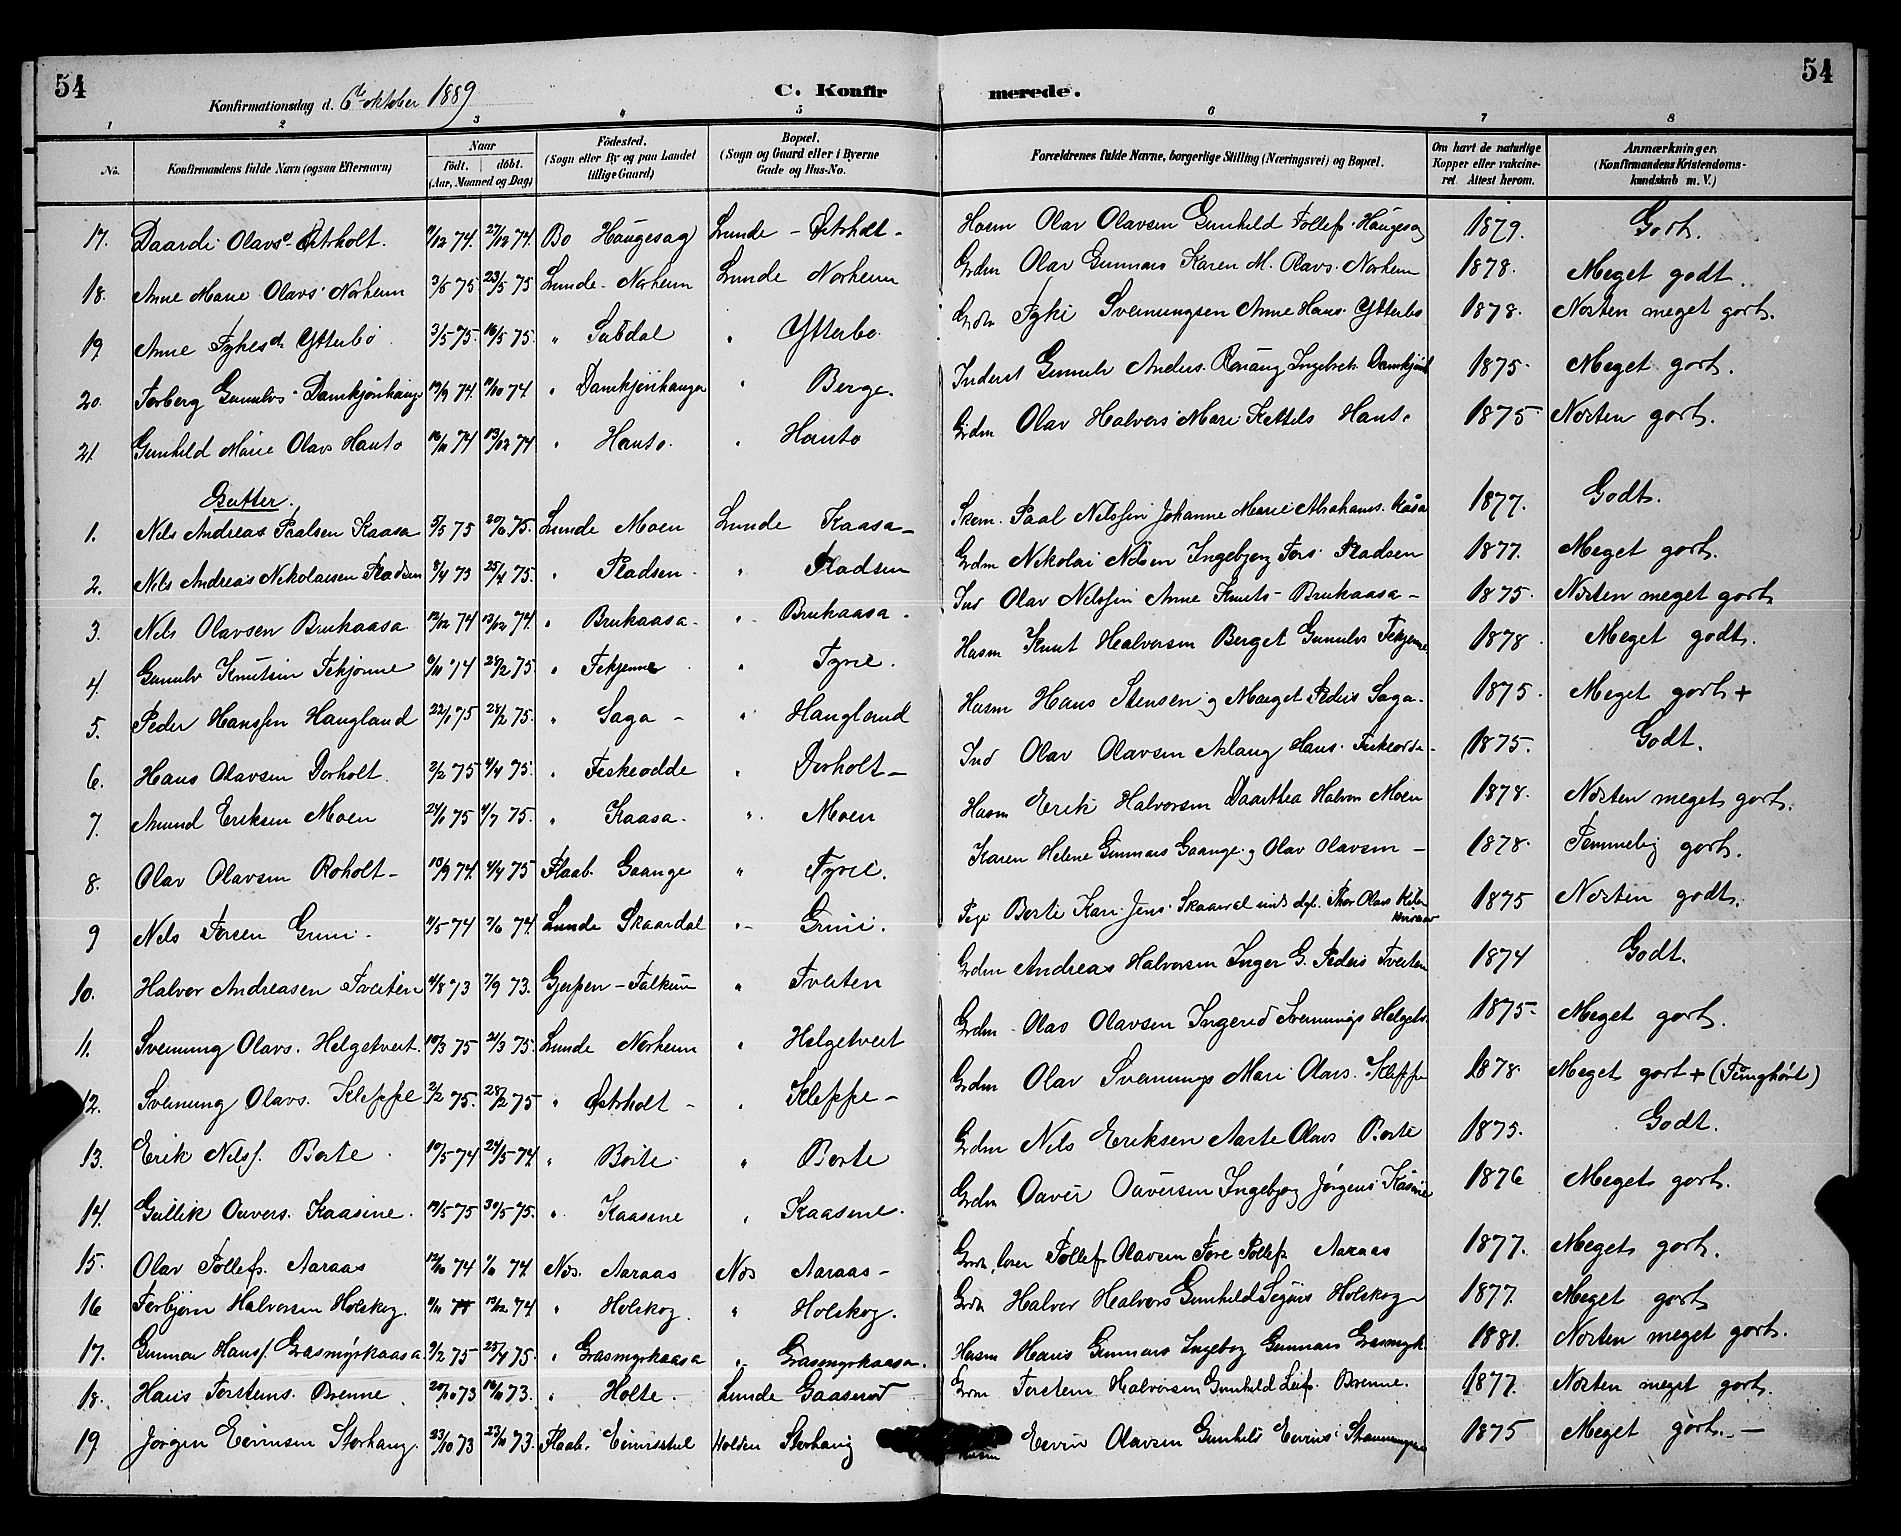 54
54
Konfirmationsdag d. 6te oktober 1889
C. Konfirmerede.
1 2 3 4 5 6 7 8
No.
Konfirmandens fulde Navn (ogsaa Efternavn)
Naar født. døbt. (Aar, Maaned og Dag)
Fødested. (Sogn eller By og paa Landet tillige Gaard)
Bopæl. (Sogn og Gaard eller i Byerne Gade og Hus-No.
Forældrenes fulde Navne, borgerlige Stilling (Næringsvei) og Bopæl.
Om havt de naturlige Kopper eller vakcineret. Attest herom.
Anmærkninger. (Konfirmandens Kristendomskundskab m. V.)
17. Daardi Olavsd. Østrholt. 27/12 74. Bø Haugesag Lunde - Østrholt - Husm Olav Olavsen Gunhild Tollefs. Haugesag 1879. Godt.
18. Anne Marie Olavs. Norheim 3/5 75 23/5 75 Lunde - Norheim Lunde Norheim Grdm Olav Gunnars Karen M. Olavs. Norheim 1878. Meget godt.
19 Anne Tykesd. Ytterbø 3/5 75. 16/5 75. " " Ytterbø Grdm Tyki Sveinungsen Anne Hans. Ytterbø 1878. Næsten meget godt.
20. Torberg Gunulvs. 74. 74 " " Berge. Inderst Gunulv Anders. Ingebret. 1875. Meget godt.
21. Gunhild Marie Olavs Hauto 74 13/12 74 " Hauto. " Hauto Grdm Olav Halvors. Mari Kettels Hauto 1875 Næsten godt.
Gutter.
1. Nils Andreas Paalsen Kaasa 75 75. Lunde Moen Lunde Kaasa - Paal Nilssen Johanne Marie Abrahams. Kåsa 1877. Godt.
2. Nils Andreas Nikolaisen Pladsen 25/4 75. " Pladsen. " Pladsen Grdm Nikolai Nilsen Ingebjørg Tors. Pladsen 1877. Meget godt.
3. Nils Olavsen Brukaasa 12/12 74 74. " Brukaasa. " Brukaasa. Ind Olav Nilssen Anne Knuts - Brukaasa - 1875. Næsten meget godt
4. Gunulv Knutsen Tekjønne 74 28/2 75. " Tekjenne " Tyrie. Husm Knut Halvorsen Berget Gunulvs Tekjenne 1878. Meget godt.
5. Peder Hanssen Haugland 22/1 75 75. " Saga - " Haugland Husm Hans Stensen og Marget Peders Saga. 1875. Meget godt +
6. Hans Olavsen Dorholt. 2/2 75 4/4 75. " Feskeodde " Dorholt - Ind Olav Olavsen Aslaug Hans. 1875. Godt.
7. Amund Eriksen Moen 75 4/7 75. " Kaasa. " Moen Husm Erik Halvorsen Daarthea Halvors Moen 1878. Næsten meget godt.
8. Olav Olavsen Roholt - 10/9 74. 4/4 75 Flaab. Gaange " Tyrie. Karen Helene Gunnars Gaange og Olav Olavsen - 1878. Temmelig godt.
9 Nils Torsen Grini. 74 74. Lunde Skaardal " - Grini. Pige Berte Kari Jens. Skaardal Thor Olavs 1875 Næsten godt.
10. Halvor Andreasen Tveiten 4/8 73 7/9 73. Gjerpen - Falkum " Tveiten Grdm Andreas Halvorsen Inger G. Peders Tveiten 1874 Godt.
11. Sveinung Olavs. Helgetveit. 10/3 75 21/3 75. Lunde Norheim " Helgetveit Grdm - Olav Olavsen Ingerid Sveinungs Helgetv. 1875. Meget godt.
12. Sveinung Olavs. Kleppe 2/2 75. 28/2 75 " Østrholt - " Kleppe - Grdm Olav Sveinungs Mari Olavs. Kleppe 1878. Meget godt + (Tunghørt)
13. Erik Nilss. Børte. 10/5 74 24/5 74. " Børte. " Børte Grdm Nils Eriksen Aarte Olavs Børte 1875. Godt.
14. Gullik Oavers. Kaasine. 75 30/5 75. " Kaasine " Kaasine. Grdm Oaver Oaversen Ingebjørg Jørgens Kåsine 1876 Meget godt.
15. Olav Tollefs. Aaraas 74 74. Nes. Aaraas Nes Aaraas - Tollef Olavsen Tore Tollefs Aaraas 1877. Meget godt.
16 Torbjørn Halvorsen Holskog. 13/12 74 " Holskog. " Holskog. Grdm Halvor Halvors Gunhild Holskog 1877. Meget godt
17. Gunnar Hanss. Grasmyrkaasa 9/2 75 25/4 75. " Grasmyrkaasa " Grasmyrkaasa. Husm Hans Gunnars Ingeborg Gunnars Grasmyrk. 1881. Næsten meget godt.
18. Hans Torsteins. Brenne 73 73. " Holte. Lunde Gaaserød Grdm Torstein Halvorsen Gunhild Leifs. Brenne. 1877. Næsten meget godt.
19 Jørgen Eivinsen Storhaug. 23/10 73 73. Flaab. Holden Storhaug Husm Eivin Olavsen Gunhild Eivins 1875 Meget godt. -